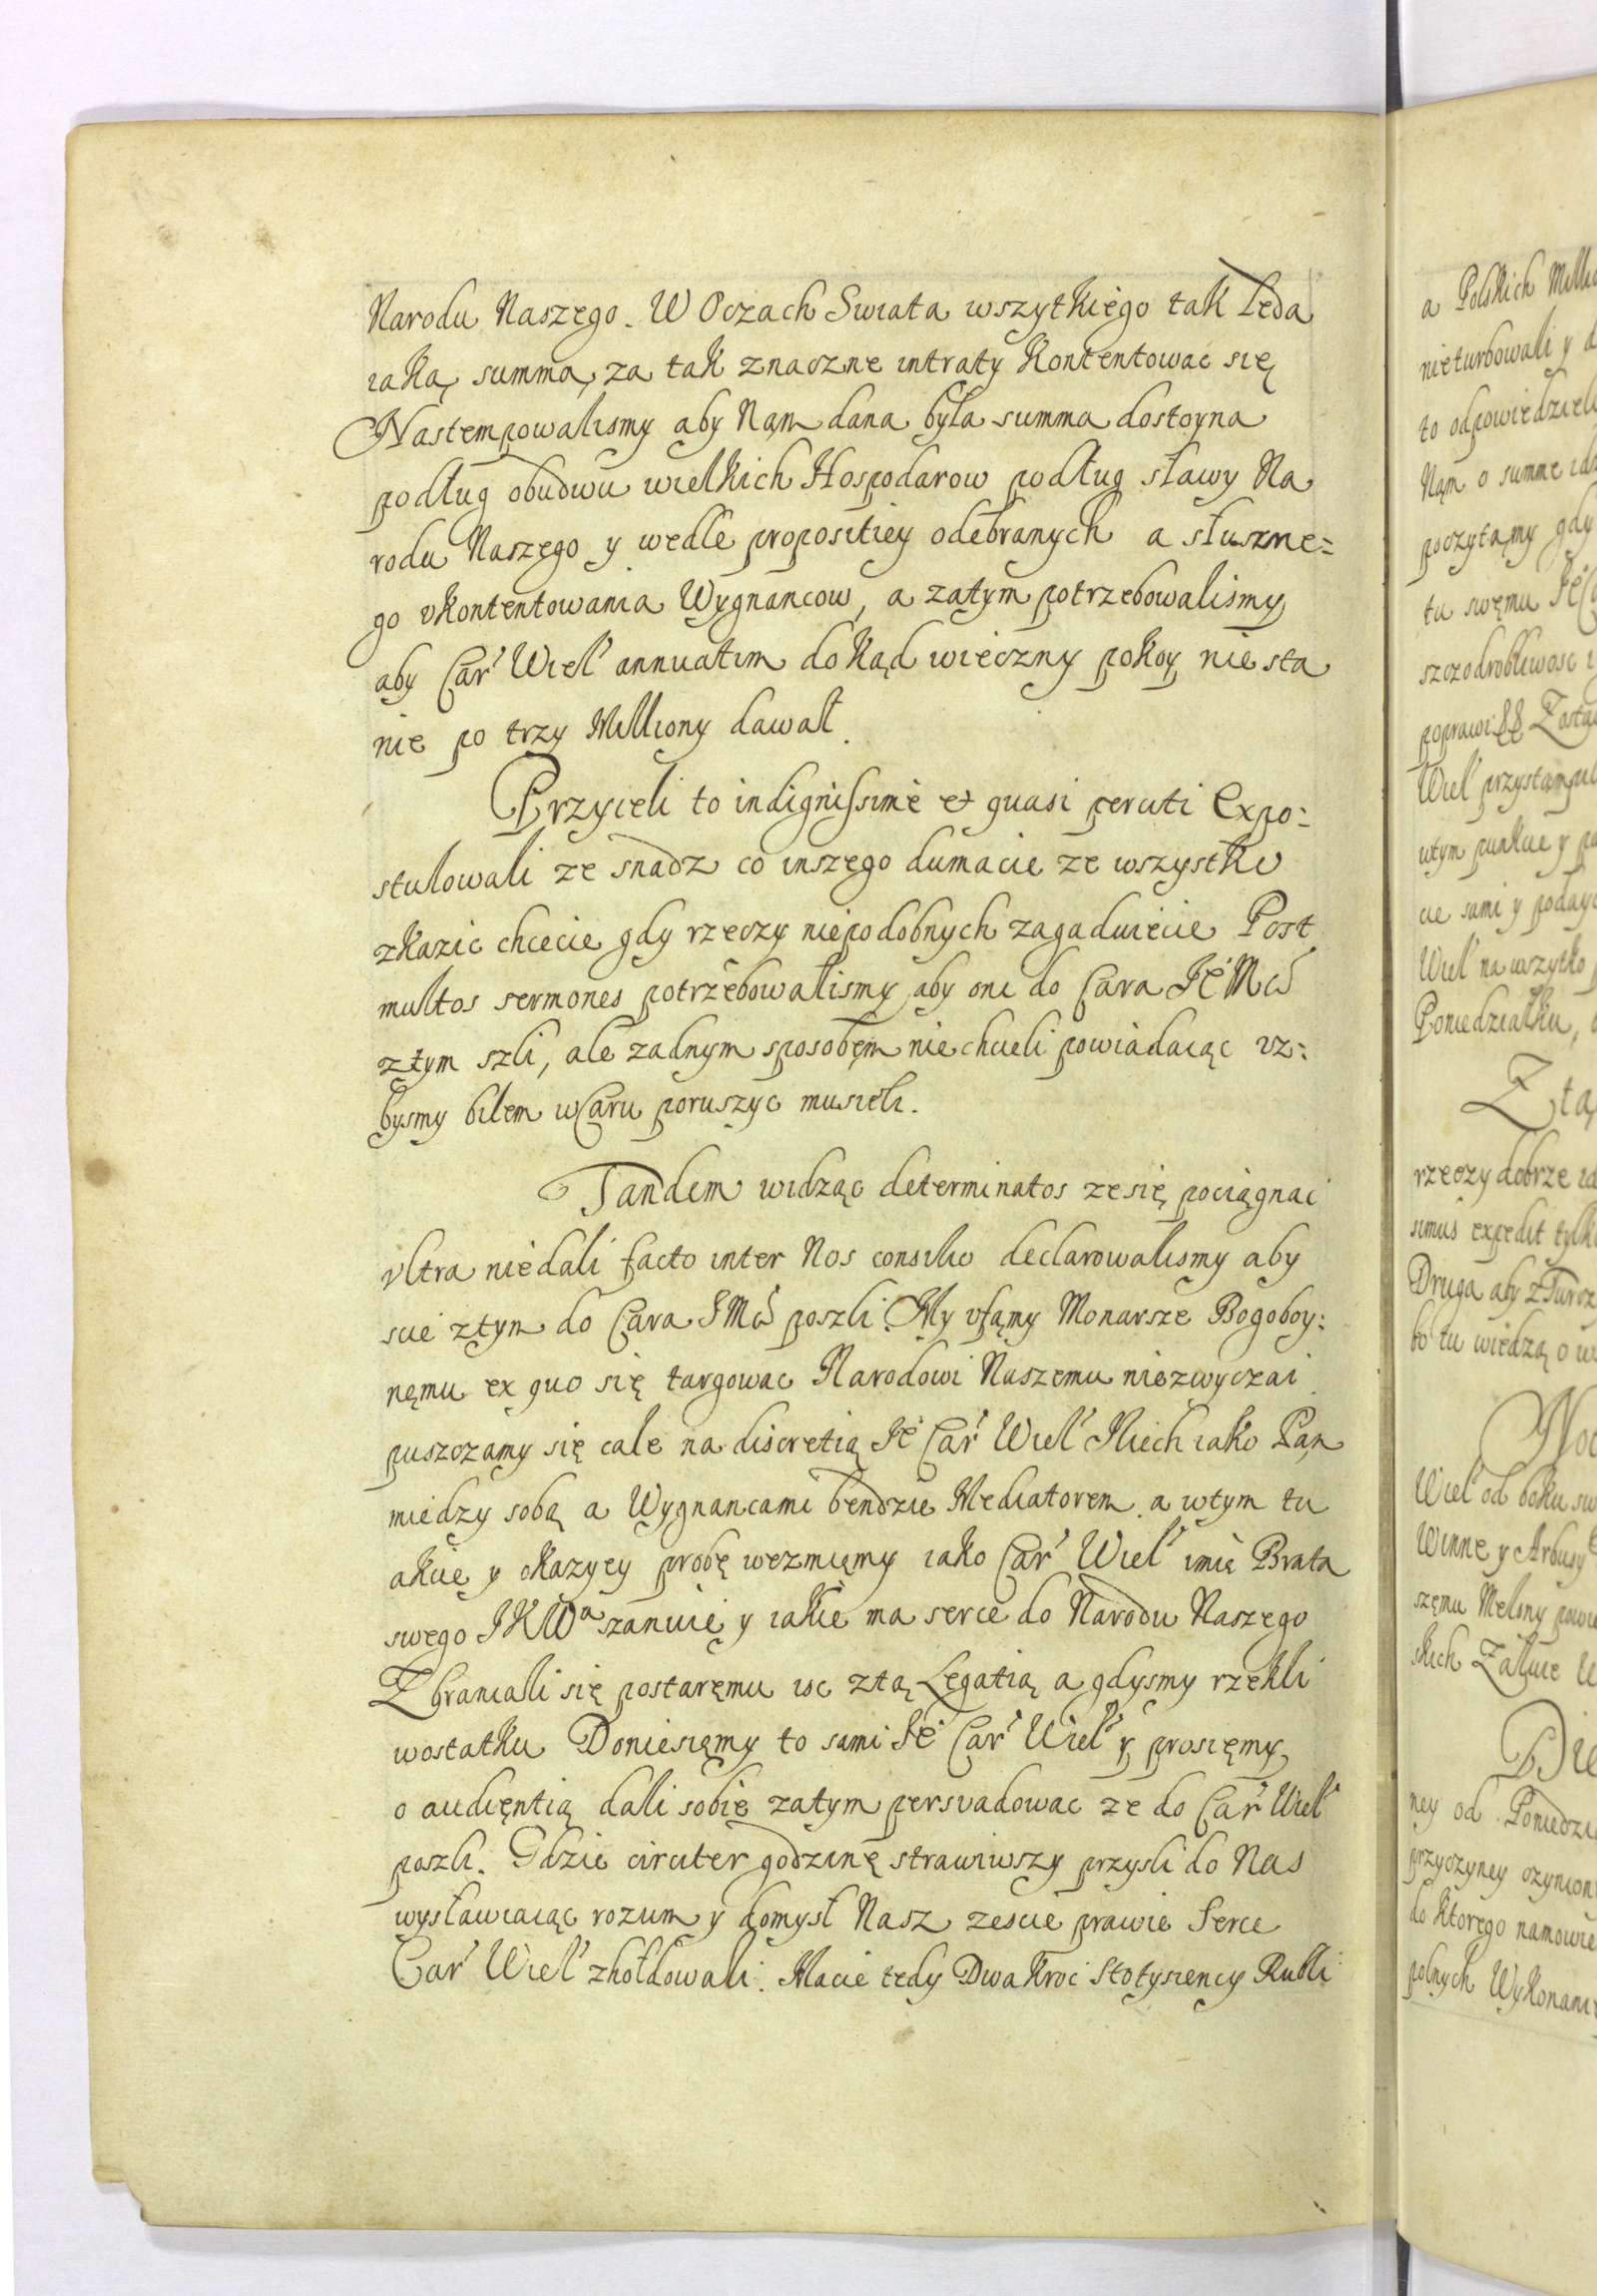 Narodu Naszego. W Oczach Swiata wszytkiego tak leda
iaką summą, za tak znaczne intraty kontentowac się
Nastempowalismy aby Nąm dana była summa dostoyna
podług obudwu wielkich Hospodarow podług sławy Na
rodu Naszego y wedle propositiey odebranych a słuszne=
go vkontentowania Wygnancow, a zatym potrzebowalismy
aby Car' Wiel' annuatim dokąd wieczny pokoy nie sta
nie po trzy Milliony dawał.
Przyieli to indignissime et quasi percuti Expo=
stulowali ze snadz co inszego dumacie ze wszystko
zkazic chcecie gdy rzeczy niepodobnych zagaduiecie Post
multos sermones potrzebowalismy aby oni do Cara Je Mci
ztym szli, ale zadnym sposobęm nie chcieli powiadaiąc vz=
bysmy bilem w Caru poruszyc musieli.
Tandem widząc determinatos ze się pociągnac
vltra niedali facto inter Nos consilio declarowalismy aby
scie ztym do Cara JMci poszli. My vfamy Monarsze Bogoboy=
nęmu ex quo się targowac Narodowi Naszemu niezwyczai
puszczamy się cale na discretią Je Car' Wiel' Niech iako Pan
miedzy sobą a Wygnancami bendzie Mediatorem. a wtym tu
akcie y okazyey probę wezmięmy iako Car' Wiel' imie Brata
swego JKWa szanuie y iakie ma serce do Narodu Naszego
Zbraniali się postaręmu isc ztą Legatią a gdysmy rzekli
wostatku Doniesięmy to sami Je Car' Wiel' y prosięmy
o audięntią dali sobie zatym persvadowac ze do Car' Wiel'
poszli. Gdzie circiter godzinę strawiwszy przysli do Nas
wysławiaiąc rozum y domysł Nasz zescie prawie Serce
Car' Wiel' zhołdowali. Macie tedy Dwa kroc stotysiency Rubli
a Polskich
nieturbowali y
to odpowiedzieli
Nąm o summe
poczytamy gdy
tu swęmu
szczodrobliwosc
Wiel' przystąmpil
wtym punkcie y
cie sami y
Wiel' na wszytko
Poniedziałku,
Ztą
rzeczy dobrze
simus expedit tylko
Druga aby z
bo tu wiedzą o
Wiel' od boku
Winne y Arbusy
szęmu Melony
skich
Die
ney od Poniedzi
przyczyney
do ktorego namowie
polnych Wykonani